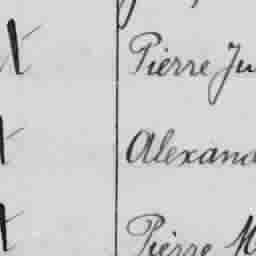 Pierre Ju
Alexand
Pierre M